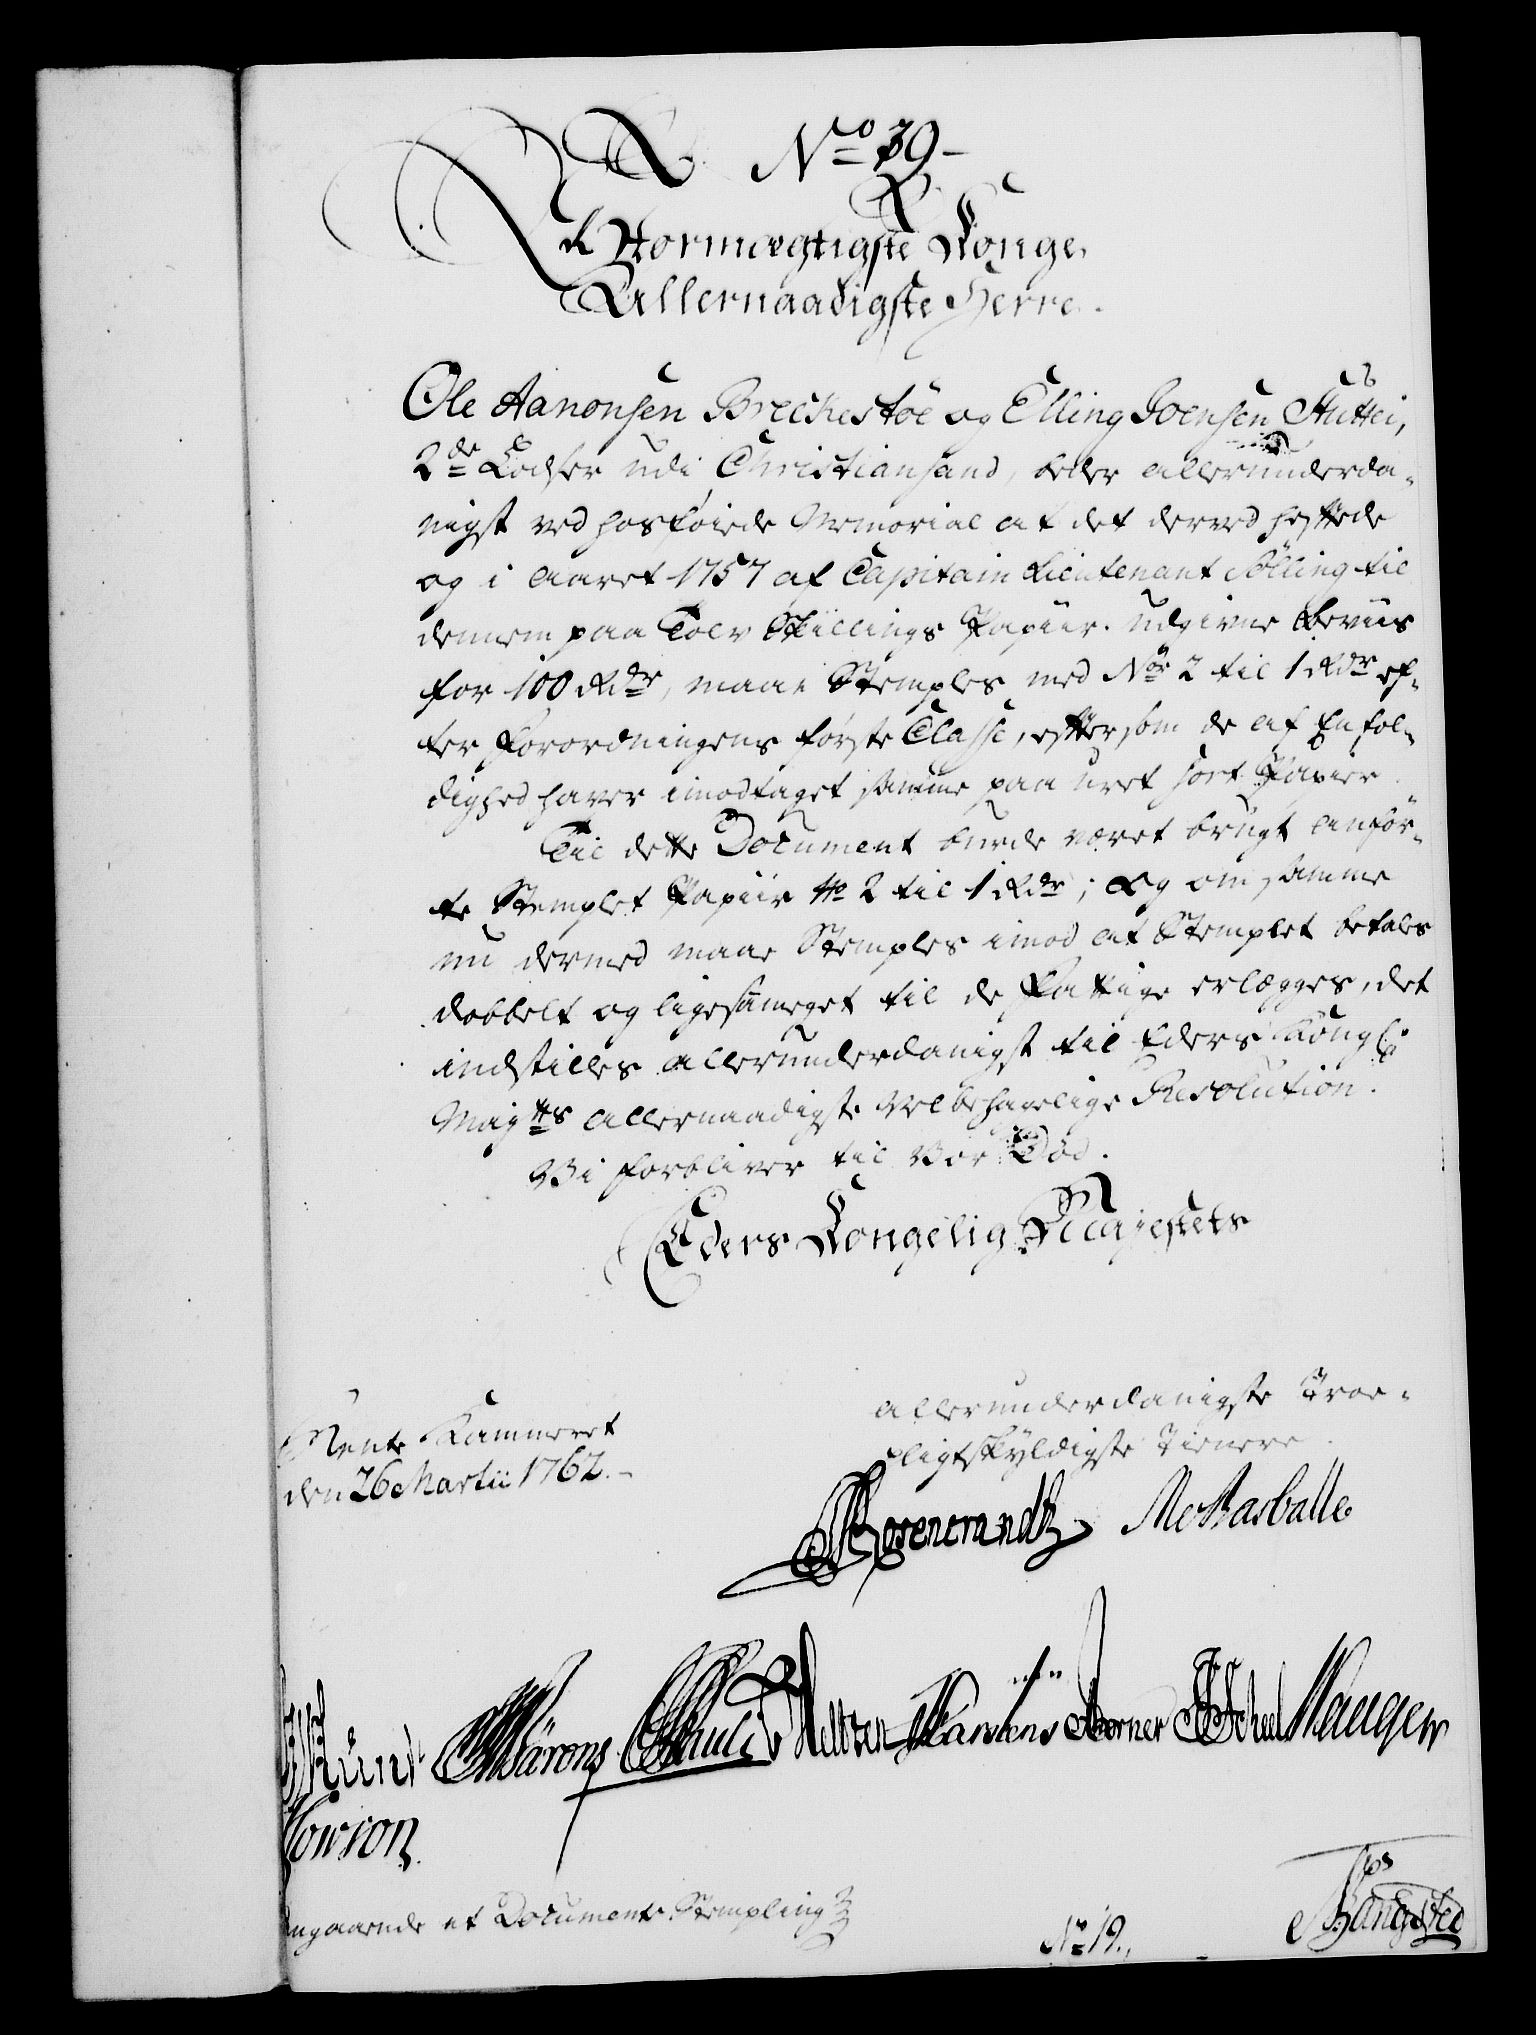 No 39
Stormægtigste Konge,
Allernaadigste Herre.
Ole Aanonsen Breckestöe og Elling Joensen
2de Lodser udi Christiansand, beder allerunderda-
nigst ved hosföiede Memorial at det derved heftede
og i Aaret 1757 af Capitain Lieutenant Sölling til
dennem paa Tolv Skillings Papiir udgivne Beviis
for 100 Rdr, maae Stemples med No 2 til 1 Rdr ef-
ter Forordningens förste Classe, eftersom de af Enfol-
dighed haver imodtaget samme paa uret sort Papiir.
Til dette Document burde været brugt anför-
te Stemplet Papiir No 2 til 1 Rdr; Og om samme
nu dermed maae Stemples imod at Stemplet betales
dobbelt og ligesaameget til de Fattige erlægges, det
indstilles allerunderdanigst til Eders Kongl.
Mayts allernaadigste Velbehagelige Resolution.
Vi forbliver til Vor Död.
Eders Kongelig Majestets
allerunderdanigste Troe-
pligtskyldigste Tienere
Rente Kammeret
den 26 Martii 1762.
Rosencrandtz
Angaaende et Documents Stempling
No 19.